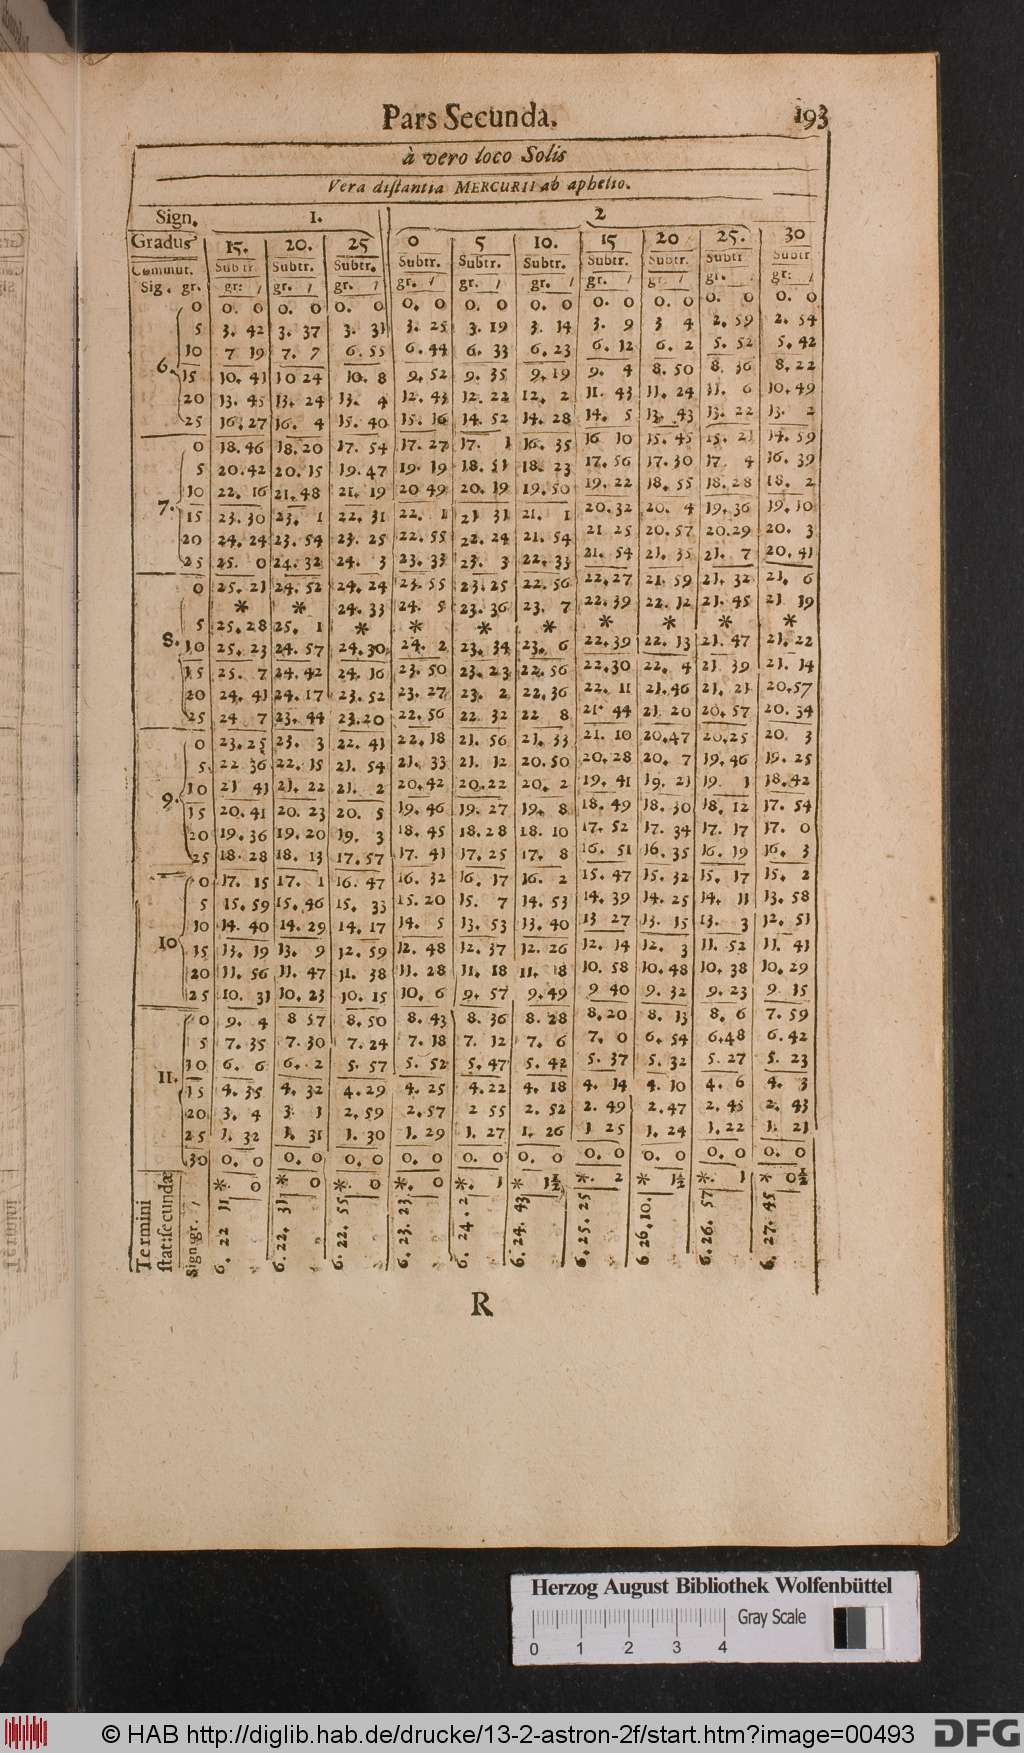 Pars Secunda. 193
à vero loco Solis
Vera distantia MERCURII ab aphelio.
Sign. 1. 2
Gradus 15. 20. 25 0 5 10. 15 20 25. 30
Commut. Subtr. Subtr. Subtr. Subtr. Subtr. Subtr. Subtr. Subtr. Subtr Subtr
Sig. gr. gr: / gr. / gr. / gr. / gr. / gr. / gr. / gr. / gr. / gr: /
0 0. 0 0. 0 0. 0 0. 0 0. 0 0. 0 0. 0 0. 0 0. 0 0. 0
5 3. 42 3. 37 3. 31 3. 25 3. 19 3. 14 3. 9 3 4 2. 59 2. 54
10 7 19 7. 7 6. 55 6. 44 6. 33 6. 23 6. 12 6. 2 5. 52 5. 42
6. 15 10. 41 10 24 10. 8 9. 52 9. 35 9. 19 9. 4 8. 50 8. 36 8. 22
20 13. 45 13. 24 13. 4 12. 43 12. 22 12. 2 11. 43 11. 24 11. 6 10. 49
25 16. 27 16. 4 15. 40 15. 16 14. 52 14. 28 14. 5 13. 43 13. 22 13. 2
0 18. 46 18. 20 17. 54 17. 27 17. 1 16. 35 16 10 15. 45 15. 21 14. 59
5 20. 42 20. 15 19. 47 19. 19 18. 51 18. 23 17. 56 17. 30 17 4 16. 39
10 22. 16 21. 48 21. 19 20 49 20. 19 19. 50 19. 22 18. 55 18. 28 18. 2
7. 15 23. 30 23. 1 22. 31 22. 1 21 31 21. 1 20. 32 20. 4 19. 36 19. 10
20 24. 24 23. 54 23. 25 22. 55 22. 24 21. 54 21 25 20. 57 20. 29 20. 3
25 25. 0 24. 32 24. 3 23. 33 23. 3 22. 33 21. 54 21. 35 21. 7 20. 41
0 25. 21 24. 52 24. 24 23. 55 23. 25 22. 56 22. 27 21. 59 21. 32 21. 6
* * 24. 33 24. 5 23. 36 23. 7 22. 39 22. 12 21. 45 21 19
5 25. 28 25. 1 * * * * * * * *
8. 10 25. 23 24. 57 24. 30 24. 2 23. 34 23. 6 22. 39 22. 13 21. 47 21. 22
15 25. 7 24. 42 24. 16 23. 50 23. 23 22. 56 22. 30 22. 4 21 39 21. 14
20 24. 41 24. 17 23. 52 23. 27 23. 2 22. 36 22. 11 21. 46 21. 21 20. 57
25 24 7 23. 44 23. 20 22. 56 22 32 22 8 21. 44 21 20 20. 57 20. 34
0 23. 25 23. 3 22. 41 22. 18 21. 56 21. 33 21. 10 20. 47 20. 25 20. 3
5. 22 36 22. 15 21. 54 21. 33 21. 12 20. 50 20. 28 20. 7 19. 46 19. 25
10 21 41 21. 22 21. 2 20. 42 20. 22 20. 2 19. 41 19. 21 19. 1 18. 42
9. 15 20. 41 20. 23 20. 5 19. 46 19. 27 19. 8 18. 49 18. 30 18. 12 17. 54
20 19. 36 19. 20 19. 3 18. 45 18. 28 18. 10 17. 52 17. 34 17. 17 17. 0
25 18. 28 18. 13 17. 57 17. 41 17. 25 17. 8 16. 51 16. 35 16. 19 16. 3
0 17. 15 17. 1 16. 47 16. 32 16. 17 16. 2 15. 47 15. 32 15. 17 15. 2
5 15. 59 15. 46 15. 33 15. 20 15. 7 14. 53 14. 39 14. 25 14. 11 13. 58
10 14. 40 14. 29 14. 17 14. 5 13. 53 13. 40 13 27 13. 15 13. 3 12. 51
10 15 13. 19 13. 9 12. 59 12. 48 12. 37 12. 26 12. 14 12. 3 11. 52 11. 41
20 11. 56 11. 47 11. 38 11. 28 11. 18 11. 18 10. 58 10. 48 10. 38 10. 29
25 10. 31 10. 23 10. 15 10. 6 9. 57 9. 49 9 40 9. 32 9. 23 9 15
0 9. 4 8 57 8. 50 8. 43 8. 36 8. 28 8. 20 8. 13 8. 6 7. 59
5 7. 35 7. 30 7. 24 7. 18 7. 12 7. 6 7. 0 6. 54 6. 48 6. 42
10 6. 6 6. 2 5. 57 5. 52 5. 47 5. 42 5. 37 5. 32 5. 27 5. 23
11. 15 4. 35 4. 32 4. 29 4. 25 4. 22 4. 18 4. 14 4. 10 4. 6 4. 3
20 3. 4 3. 1 2. 59 2. 57 2 55 2. 52 2. 49 2. 47 2. 45 2. 43
25 1. 32 1. 31 1. 30 1. 29 1. 27 1. 26 1 25 1. 24 1. 22 1. 21
30 0. 0 0. 0 0. 0 0. 0 0. 0 0. 0 0. 0 0. 0 0. 0 0. 0
*. 0 * 0 *. 0 *. 0 *. 1 * 1½ *. 2 * 1½ *. 1 * 0½
Termini
stat: secundæ
Sign gr. / 6. 22 11 6. 22. 31 6. 22. 55 6. 23. 23 6. 24. 2 6. 24. 43 6. 25. 25 6 26. 10. 6. 26. 57 6. 27. 45
R
Herzog August Bibliothek Wolfenbüttel
Gray Scale
0 1 2 3 4
© HAB http://diglib.hab.de/drucke/13-2-astron-2f/start.htm?image=00493 DFG